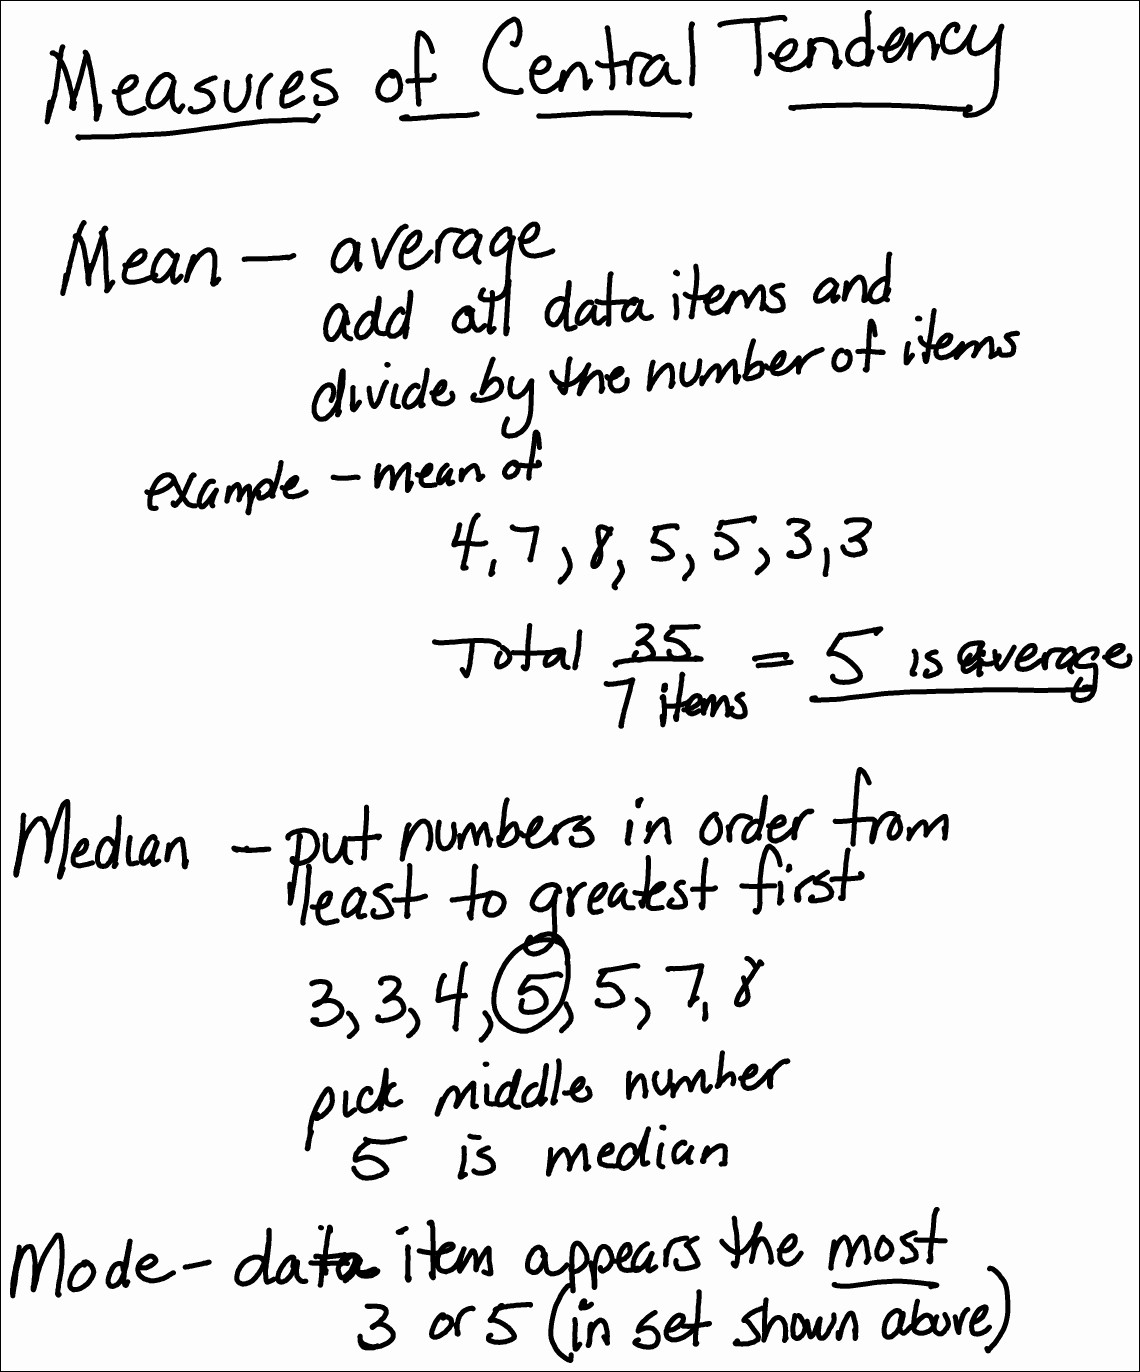 Measures of Central Tendency
Mean — average
add all data items and
divide by the number of items
example - mean of
4, 7, 8, 5, 5, 3, 3
Total 35/7 items = 5 is average
Median - put numbers in order from
least to greatest first
3, 3, 4, 5, 5, 7, 8
pick middle number
5 is median
Mode - data item appears the most
3 or 5 (in set shown above)